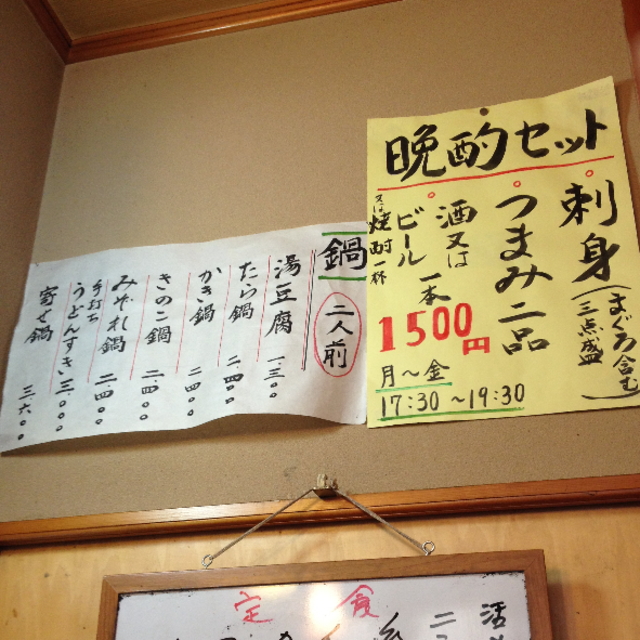 晩酌セット
刺身(まぐろ含む三点盛)
つまみ二品
酒又は
ビール一本
又は焼酎一杯
1500円
月〜金
17:30〜19:30
鍋 二人前
湯豆腐 一三〇〇
たら鍋 二四〇〇
かき鍋 二四〇〇
きのこ鍋 二四〇〇
みぞれ鍋 二四〇〇
手打ちうどんすき 三〇〇〇
寄せ鍋 三六〇〇
定食
活